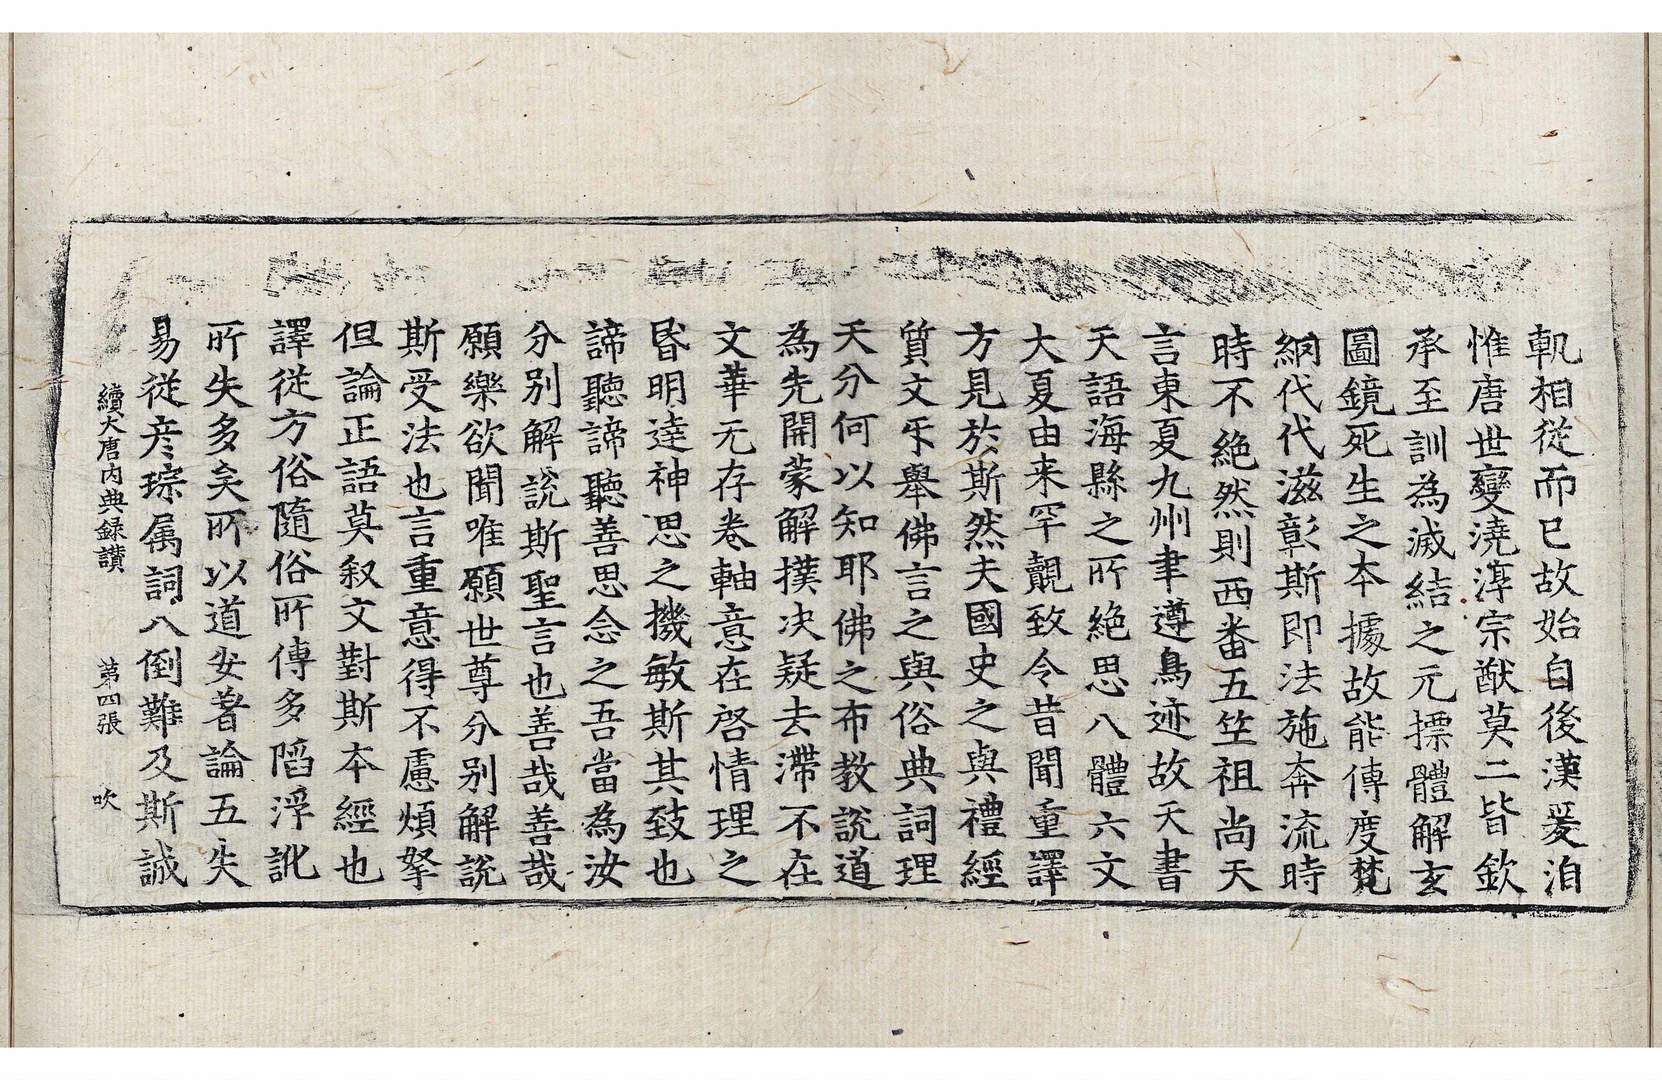 軌相從而已故始自後漢爰洎
惟唐世變澆淳宗猷莫二皆欽
承至訓為滅結之元摽體解玄
圖鏡死生之本據故能傳度梵
網代代滋彰斯即法施奔流時
時不絶然則西畨五竺祖尚天
言東夏九州聿遵鳥迹故天書
天語海縣之所絶思八體六文
大夏由来罕覿致令昔聞重譯
方見於斯然夫國史之與禮經
質文㸦舉佛言之與俗典詞理
天分何以知耶佛之布教說道
為先開蒙解撲决疑去滯不在
文華无存卷軸意在啓情理之
昏明達神思之機敏斯其致也
諦聽諦聽善思念之吾當為汝
分別解說斯聖言也善哉善哉
願樂欲聞唯願世尊分別解說
斯受法也言重意得不慮煩拏
但論正語莫叙文對斯本經也
譯從方俗隨俗所傳多䧟浮訛
所失多矣所以道安著論五失
易從彥琮属詞八倒難及斯誠
續大唐内典録讃 第四張 吹